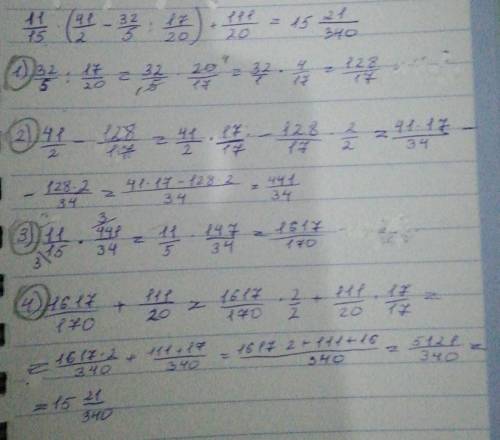 11/15 · (41/2 - 32/5 : 17/20) + 111/20 = 15 21/340
1) 32/5 : 17/20 = 32/5 · 20/17 = 32/1 · 4/17 = 128/17
2) 41/2 - 128/17 = 41/2 · 17/17 - 128/17 · 2/2 = 41·17/34 -
- 128·2/34 = 41·17-128·2/34 = 441/34
3) 11/15 · 441/34 = 11/5 · 147/34 = 1617/170
4) 1617/170 + 111/20 = 1617/170 · 2/2 + 111/20 · 17/17 =
= 1617·2/340 + 111+17/340 = 1617·2+111+16/340 = 5121/340 =
= 15 21/340